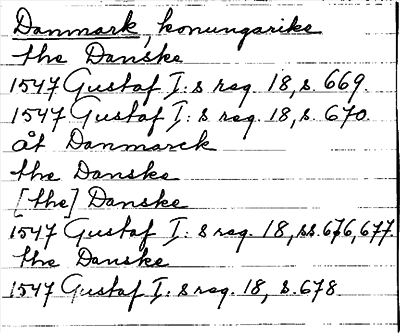 Danmark, konungarike
the Danske
1547 Gustaf I:s reg. 18, s. 669.
1547 Gustaf I:s reg. 18, s. 670.
åt Danmarck
the Danske
[the] Danske
1547 Gustaf I:s reg. 18, ss. 676, 677.
the Danske
1547 Gustaf I:s reg. 18, s. 678.